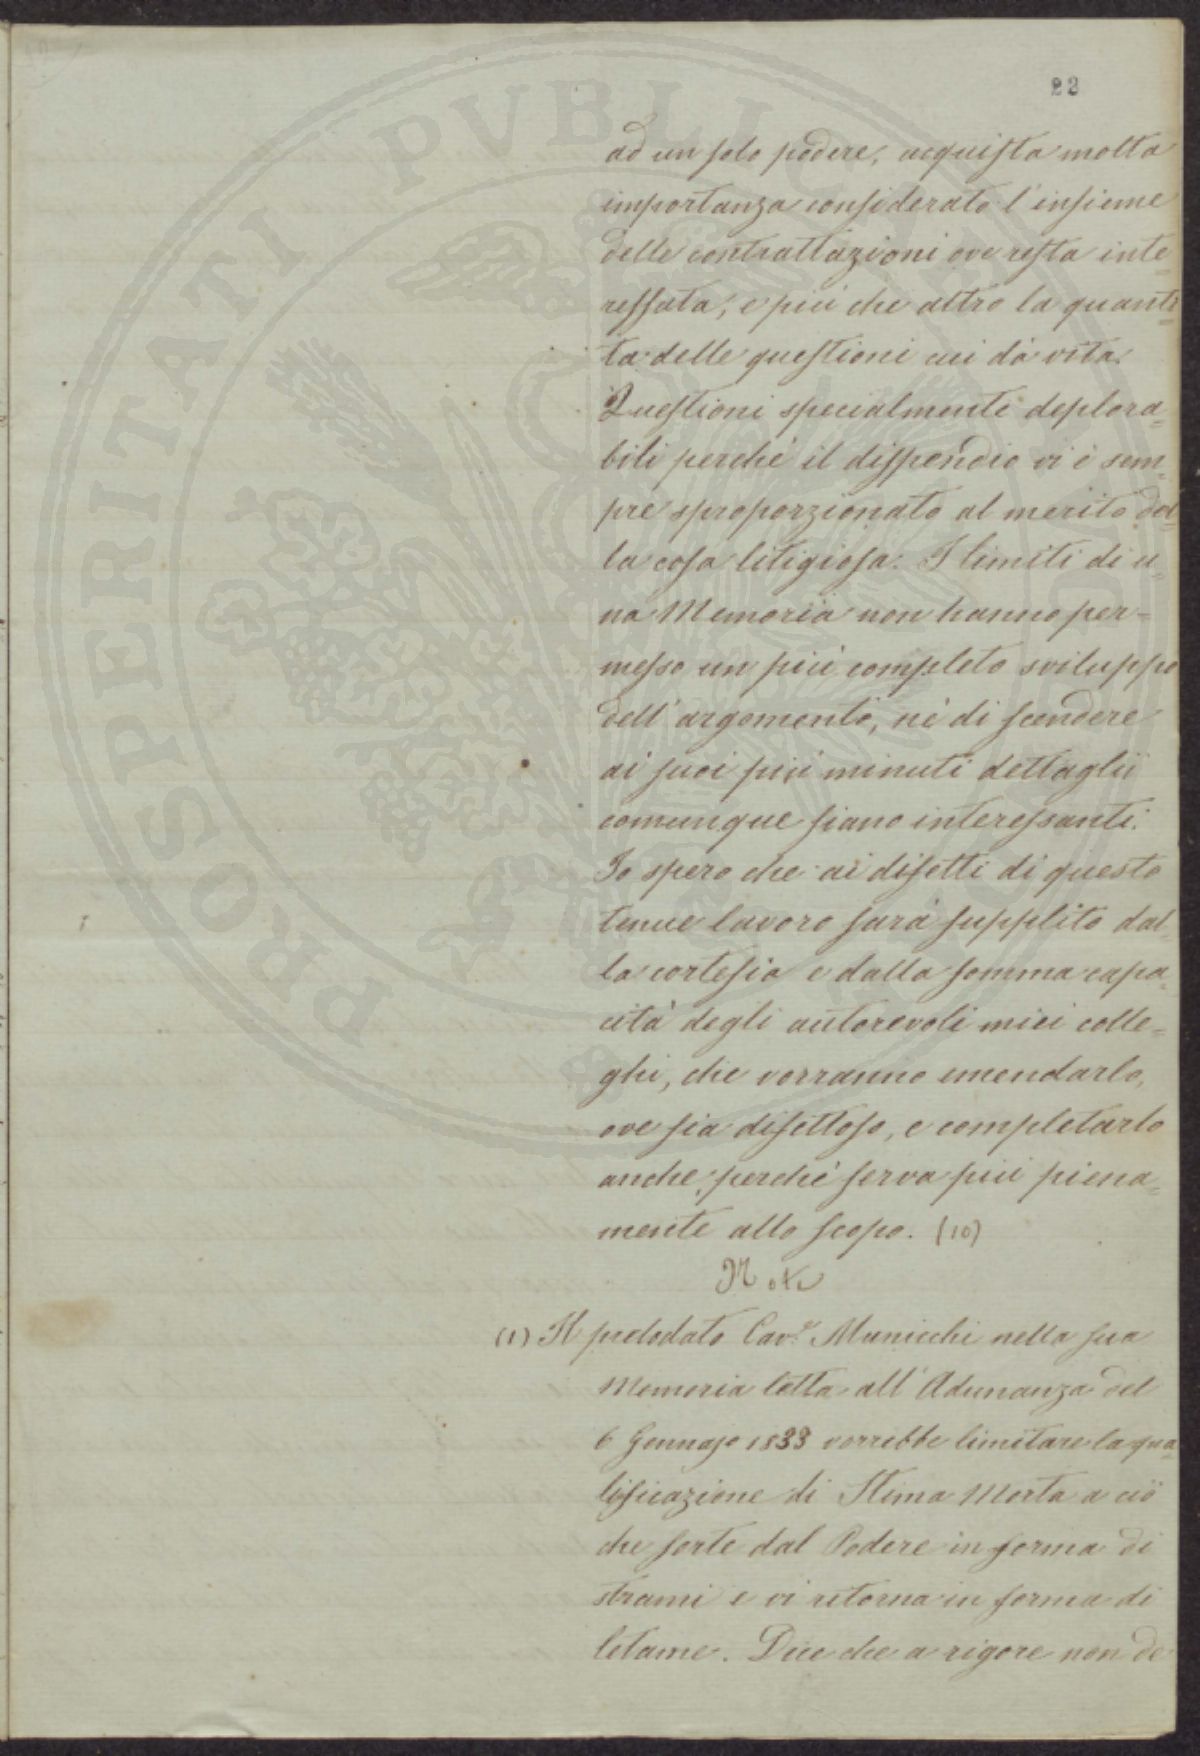 22
ad un solo podere, acquista molta
importanza considerato l'insieme
delle contrattazioni ove resta inte=
ressata, e più che altro la quanti=
ta delle questioni cui dà vita.
Questioni specialmente deplora=
bili perchè il dispendio vi è sem=
pre sproporzionato al merito del=
la cosa litigiosa. I limiti di u=
na Memoria non hanno per=
messo un più completo sviluppo
dell'argomento, nè di scendere
ai suoi più minuti dettaglii
comunque siano interessanti.
Io spero che ai difetti di questo
tenue lavoro sarà supplito dal=
la cortesia e dalla somma capa=
cità degli autorevoli miei colle=
ghi, che vorranno emendarlo,
ove sia difettoso, e completarlo
anche, perchè serva più piena=
mente allo scopo. (10)
Note
(1) Il prelodato Cav.e Municchi nella sua
Memoria letta all'Adunanza del
6 Gennajo 1833 vorrebbe limitare la qua=
lificazione di Stima Morta a ciò
che sorte dal Podere in forma di
strami e vi ritorna in forma di
letame. Dice che a rigore non de
PROSPERITATI PVBLICAE